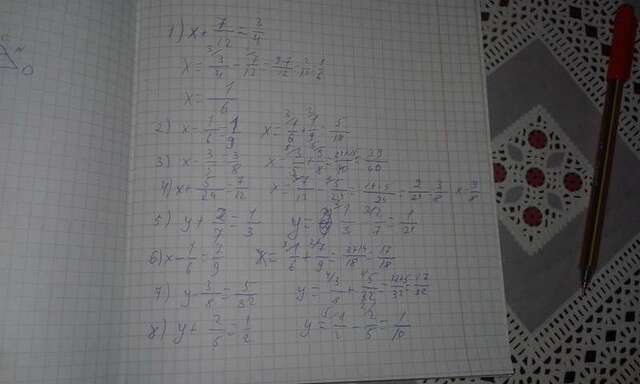 1) x + 7/12 = 3/4
x = 3/4 - 7/12 = 9-7/12 = 2/12 = 1/6
x = 1/6
2) x - 1/6 = 1/9 x = 1/6 + 1/9 = 5/18
3) x - 3/5 = 3/8 x = 3/5 + 3/8 = 39/40
4) x + 5/24 = 7/12 x = 7/12 - 5/24 = 9/24 = 3/8 x = 3/8
5) y + 2/7 = 1/3 y = 1/3 - 2/7 = 1/21
6) x - 1/6 = 7/9 x = 1/6 + 7/9 = 17/18
7) y - 3/8 = 5/32 y = 3/8 + 5/32 = 12+5/32 = 17/32
8) y + 2/5 = 1/2 y = 1/2 - 2/5 = 1/10